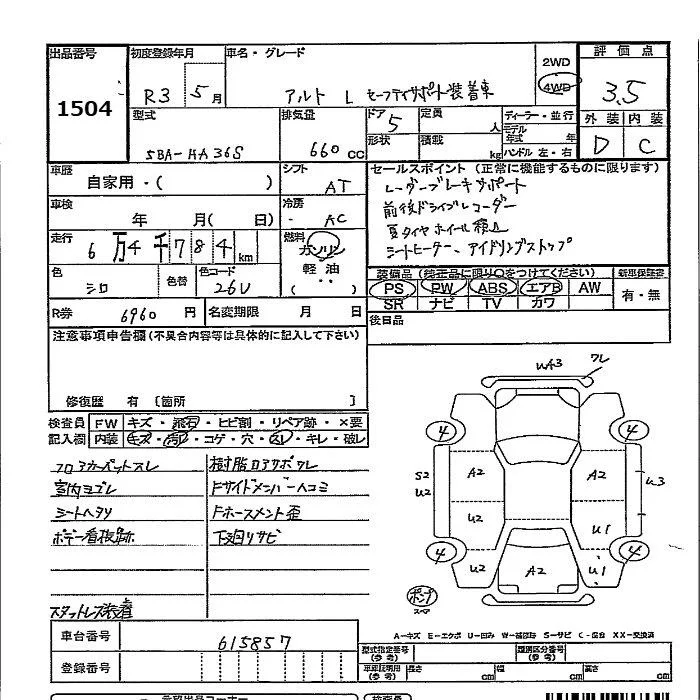 出品番号 初度登録年月 車名・グレード 2WD 評価点
1504 R3 5月 アルト L セーフティサポート装着車 4WD 3.5
型式 排気量 ドア 5 定員 人 ディーラー・並行 外装 内装
5BA-HA36S 660 cc 形状 積載 kg モデル年式 年 D C
ハンドル 左・右
車歴 シフト セールスポイント (正常に機能するものに限ります)
自家用・( ) AT レーダーブレーキサポート
車検 冷房 前後ドライブレコーダー
年 月( 日) AC 夏タイヤホイール積込
走行 燃料 シートヒーター、アイドリングストップ
6万4千784km ガソリン
軽油
( )
色 色替 色コード 装備品 (純正品に限り○をつけてください) 新車保証書
シロ 26U PS PW ABS エアB AW 有・無
SR ナビ TV カワ
R券 6960円 名変期限 月 日 後日品
注意事項申告欄(不具合内容等は具体的に記入して下さい)
修復歴 有 〔箇所 〕
検査員 FW キズ・飛石・ヒビ割・リペア跡・×要
記入欄 内装 キズ・汚・コゲ・穴・スレ・キレ・破レ
フロアカーペットスレ 樹脂ロアサポワレ
室内ヨゴレ FサイドメンバーAコミ
シートヘタリ Fホースメント歪
ボデー看板跡 下廻リサビ
スタットレス装着
UA3 ワレ
4 4
S2 A2 A2 U3
U2
U2 U1
4 4
U2 A2 U1
テンプ
スペア
車台番号 615857
登録番号
A-キズ E-エクボ U-凹み W-補修跡 S-サビ C-腐食 XX-交換済
型式指定番号(参考) 類別区分番号(参考)
車車証明用(参考) 長さ cm 幅 cm 高さ cm